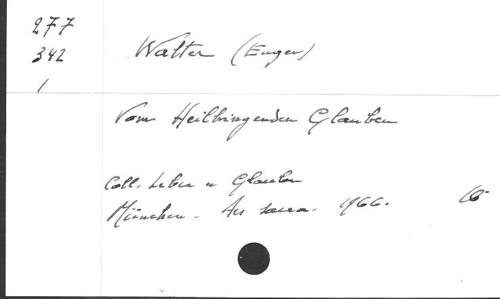 277
342
1
Walter (Eugen)
Vom Heilbringenden Glauben
Coll. Leben u Glauben
München - Ars sacra - 1966.